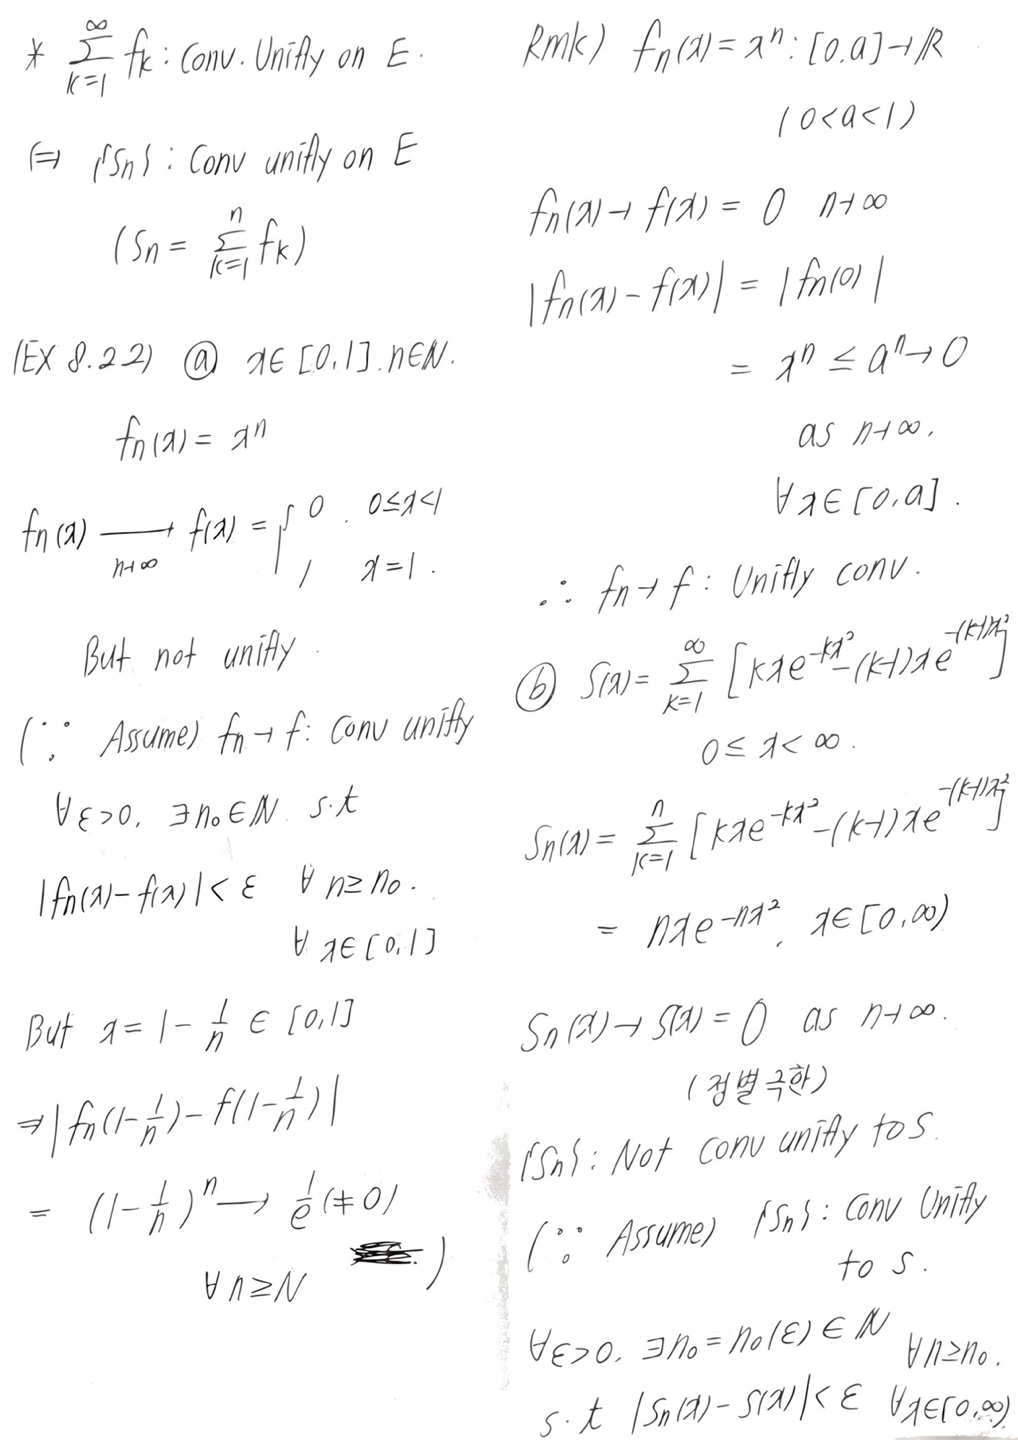 * ∑_{k=1}^{∞} fk : Conv. Unifly on E.
(⇔ {Sn} : Conv unifly on E
(Sn = ∑_{k=1}^{n} fk)
(EX 8.2.2) ⓐ x∈[0,1]. n∈N.
fn(x) = x^n
fn(x) ⟶_{n→∞} f(x) = { 0 . 0≤x<1
1 x=1.
But not unifly.
(∵ Assume) fn→f : Conv unifly
∀ε>0, ∃n₀∈N s.t
|fn(x)-f(x)|<ε ∀ n≥n₀.
∀ x∈[0,1]
But x=1-1/n ∈ [0,1]
⇒|fn(1-1/n)-f(1-1/n)|
= (1-1/n)^n ⟶ 1/e (≠0)
∀n≥N )
Rmk) fn(x)=x^n : [0,a]→R
(0<a<1)
fn(x)→f(x)=0 n→∞
|fn(x)-f(x)| = |fn(0)|
= x^n ≤ a^n→0
as n→∞.
∀x∈[0,a].
∴ fn→f : Unifly conv.
ⓑ S(x)= ∑_{k=1}^{∞} [kxe^{-kx²}-(k-1)xe^{-(k-1)x²}]
0≤x<∞.
Sn(x)= ∑_{k=1}^{n} [kxe^{-kx²}-(k-1)xe^{-(k-1)x²}]
= nxe^{-nx²}, x∈[0,∞)
Sn(x)→S(x)=0 as n→∞.
(점별극한)
{Sn} : Not conv unifly to S.
(∵ Assume) {Sn} : conv Unifly
to S.
∀ε>0. ∃n₀=n₀(ε)∈N ∀n≥n₀.
s.t |Sn(x)-S(x)|<ε ∀x∈[0,∞)